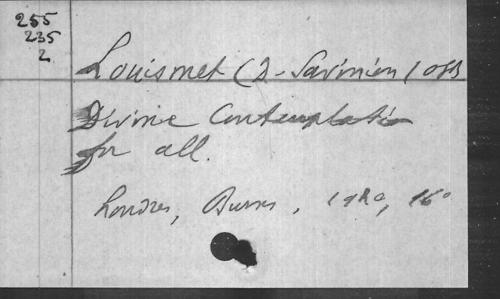 255
235
2
Louismet (D. Savinien) OSB
Divine Contemplation
for all.
Londres, Burns, 1920, 16°